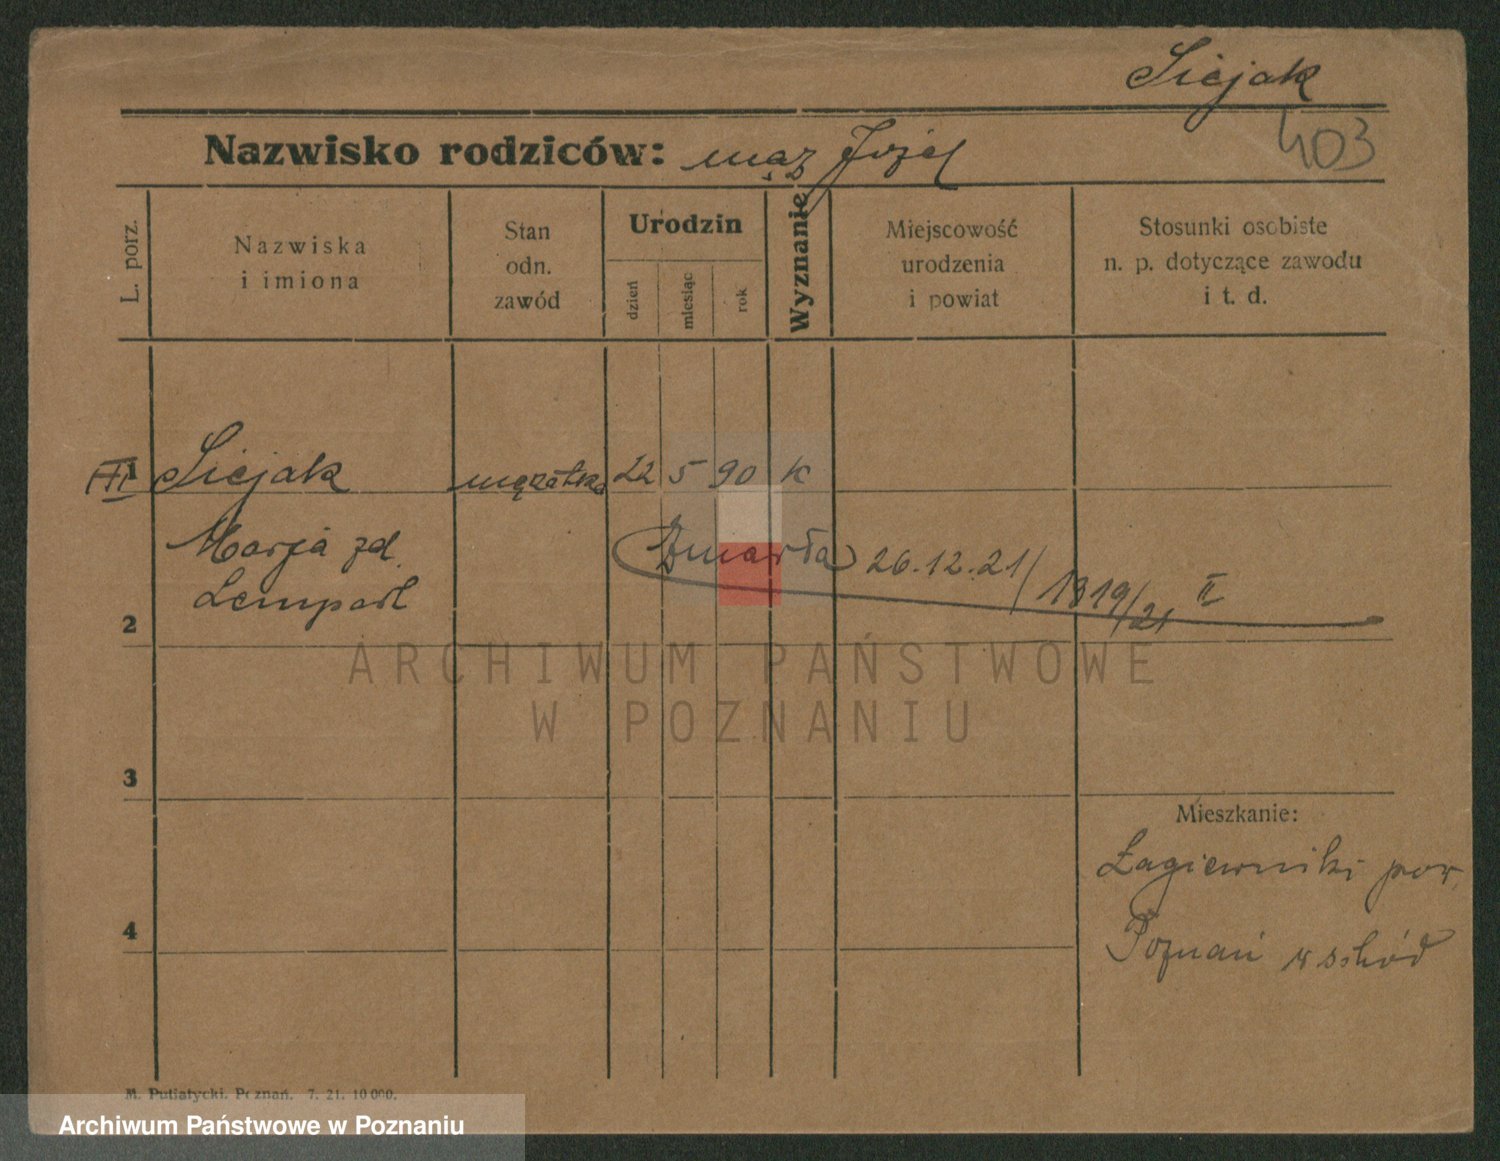 Siejak
Nazwisko rodziców: mąż Józef
403
L. porz.
Nazwiska
i imiona
Stan
odn.
zawód
Urodzin
dzień
miesiąc
rok
Wyznanie
Miejscowość
urodzenia
i powiat
Stosunki osobiste
n. p. dotyczące zawodu
i t. d.
1 Siejak mężatka 22 5 90 k
Marja zd.
Zmarła 26.12.21/1319/21 II
Lempart
2
ARCHIWUM PAŃSTWOWE
W POZNANIU
3
Mieszkanie:
Łagiewniki pow.
4
Poznań wschód
M. Putiatycki. Poznań. 7. 21. 10 000.
Archiwum Państwowe w Poznaniu